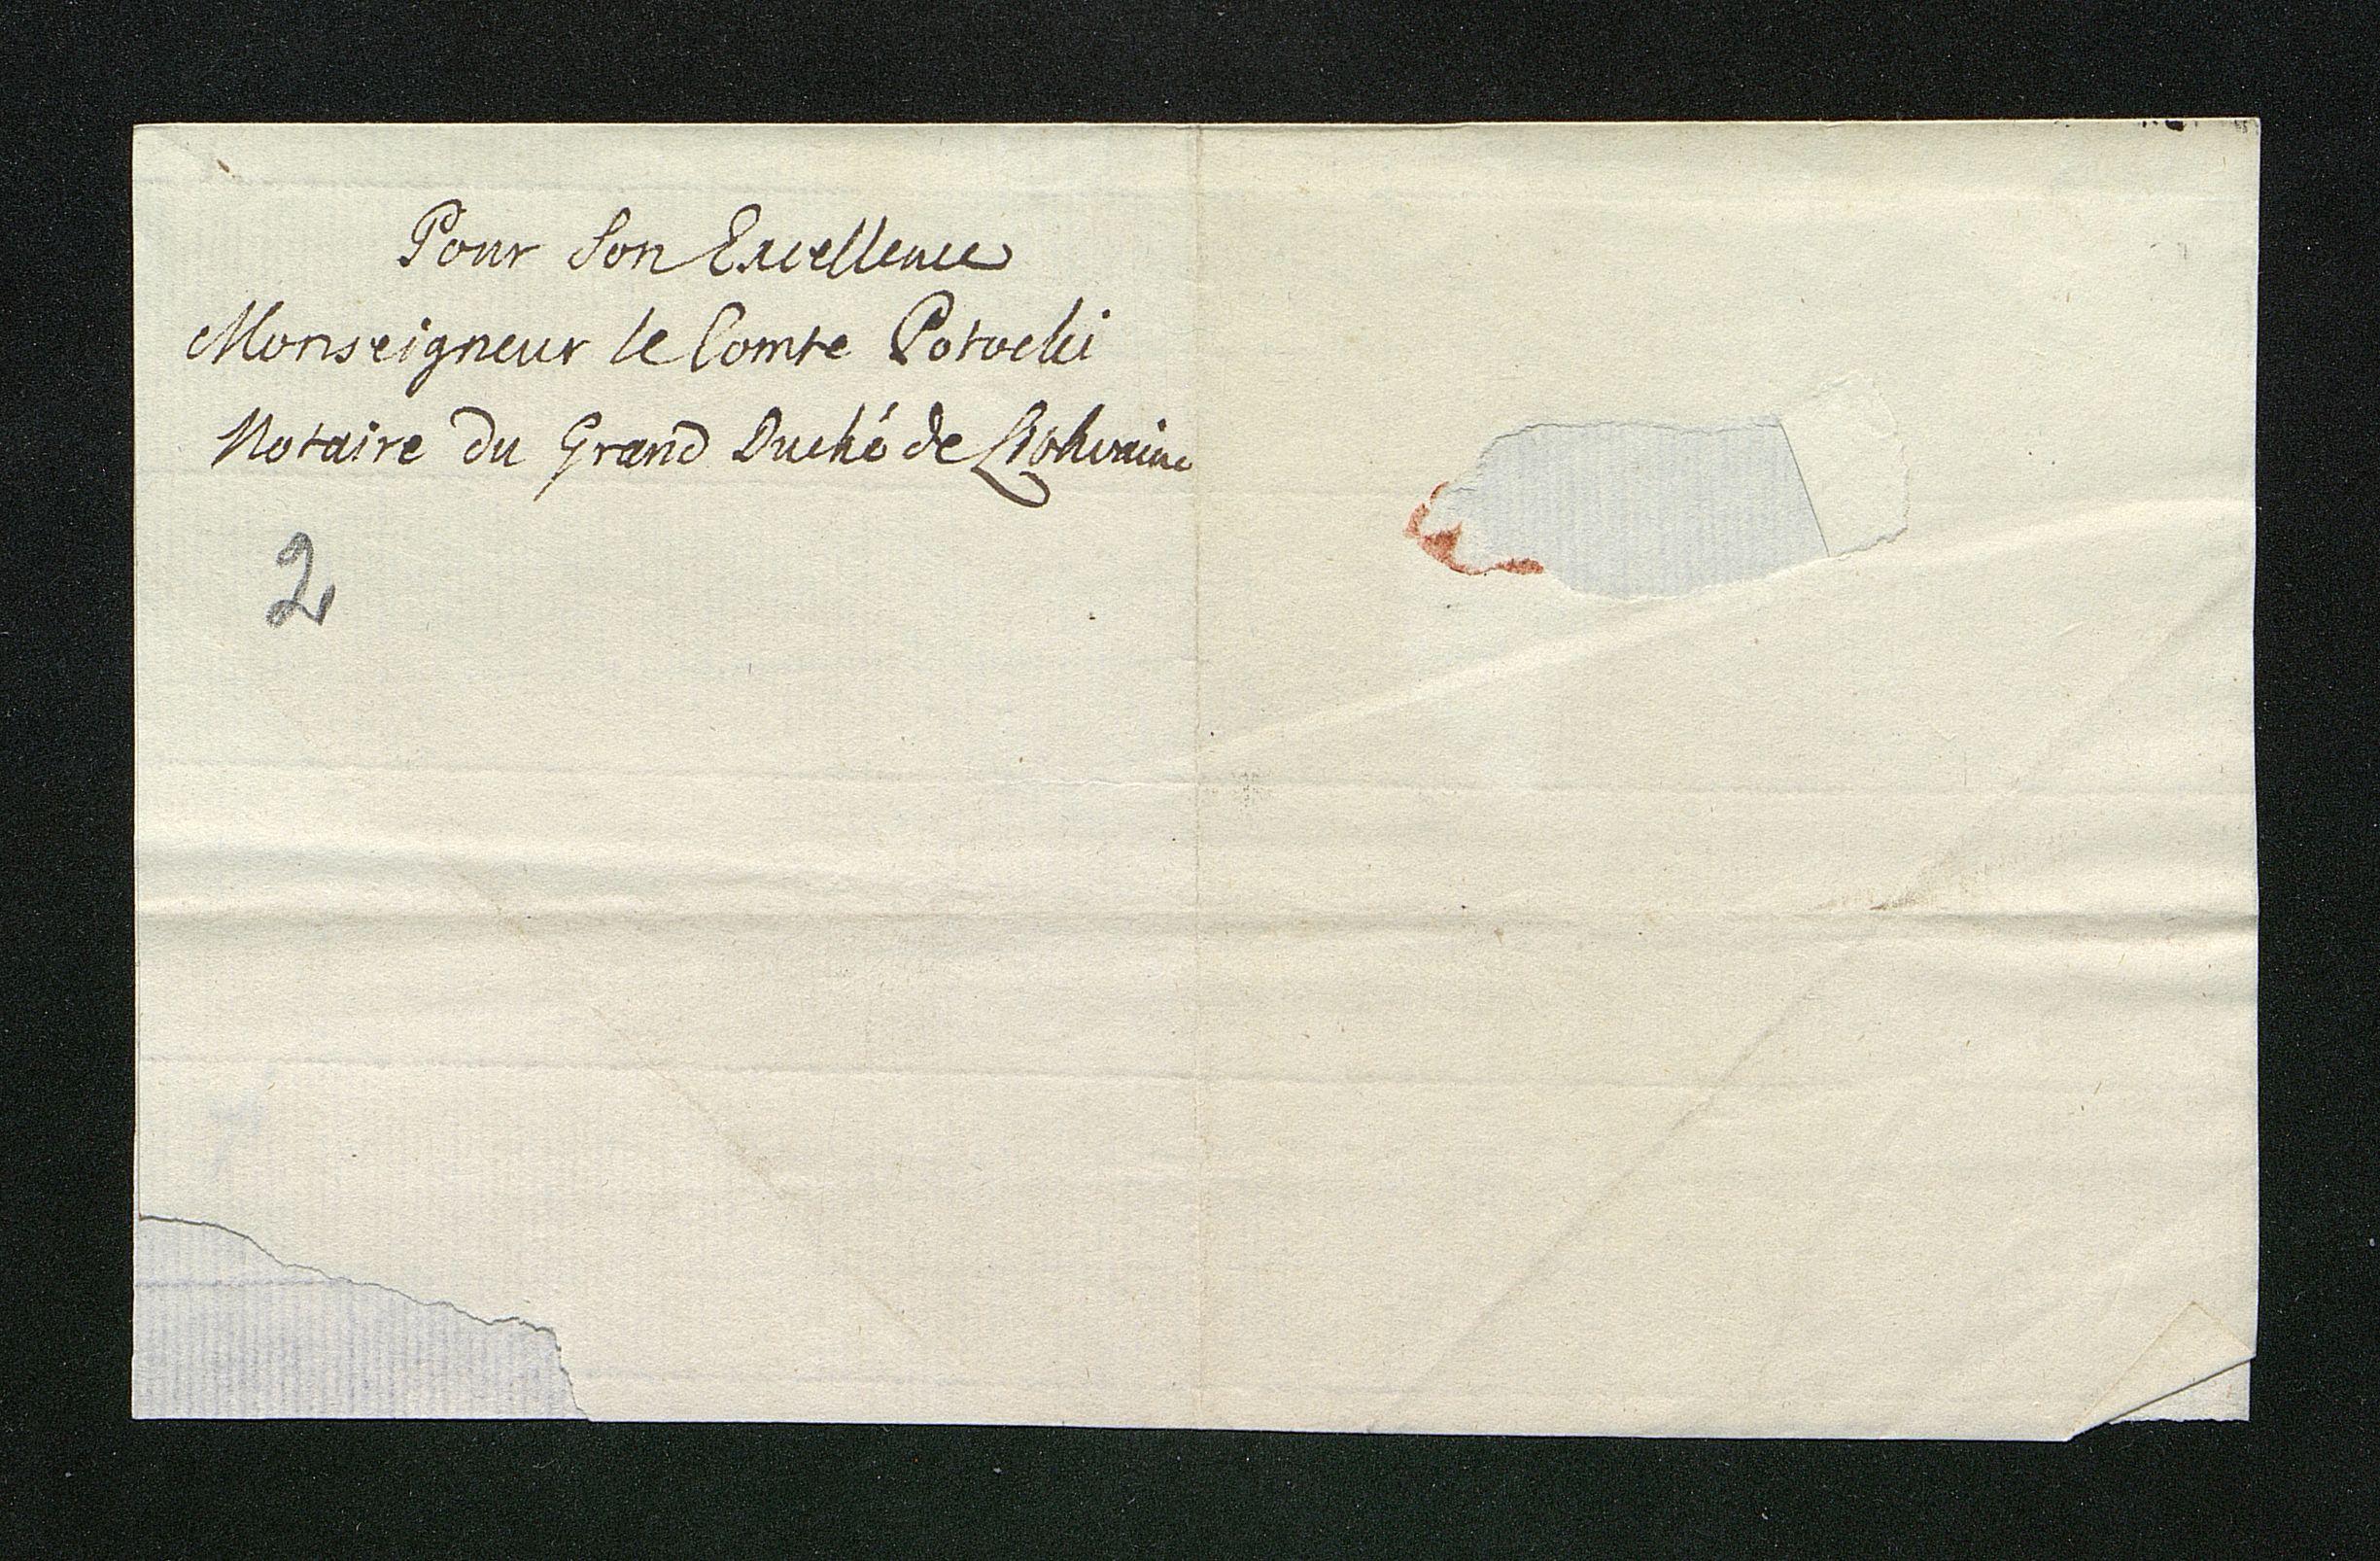 Pour Son Excellence
Monseigneur le Comte Potocki
Notaire du Grand Duché de
2